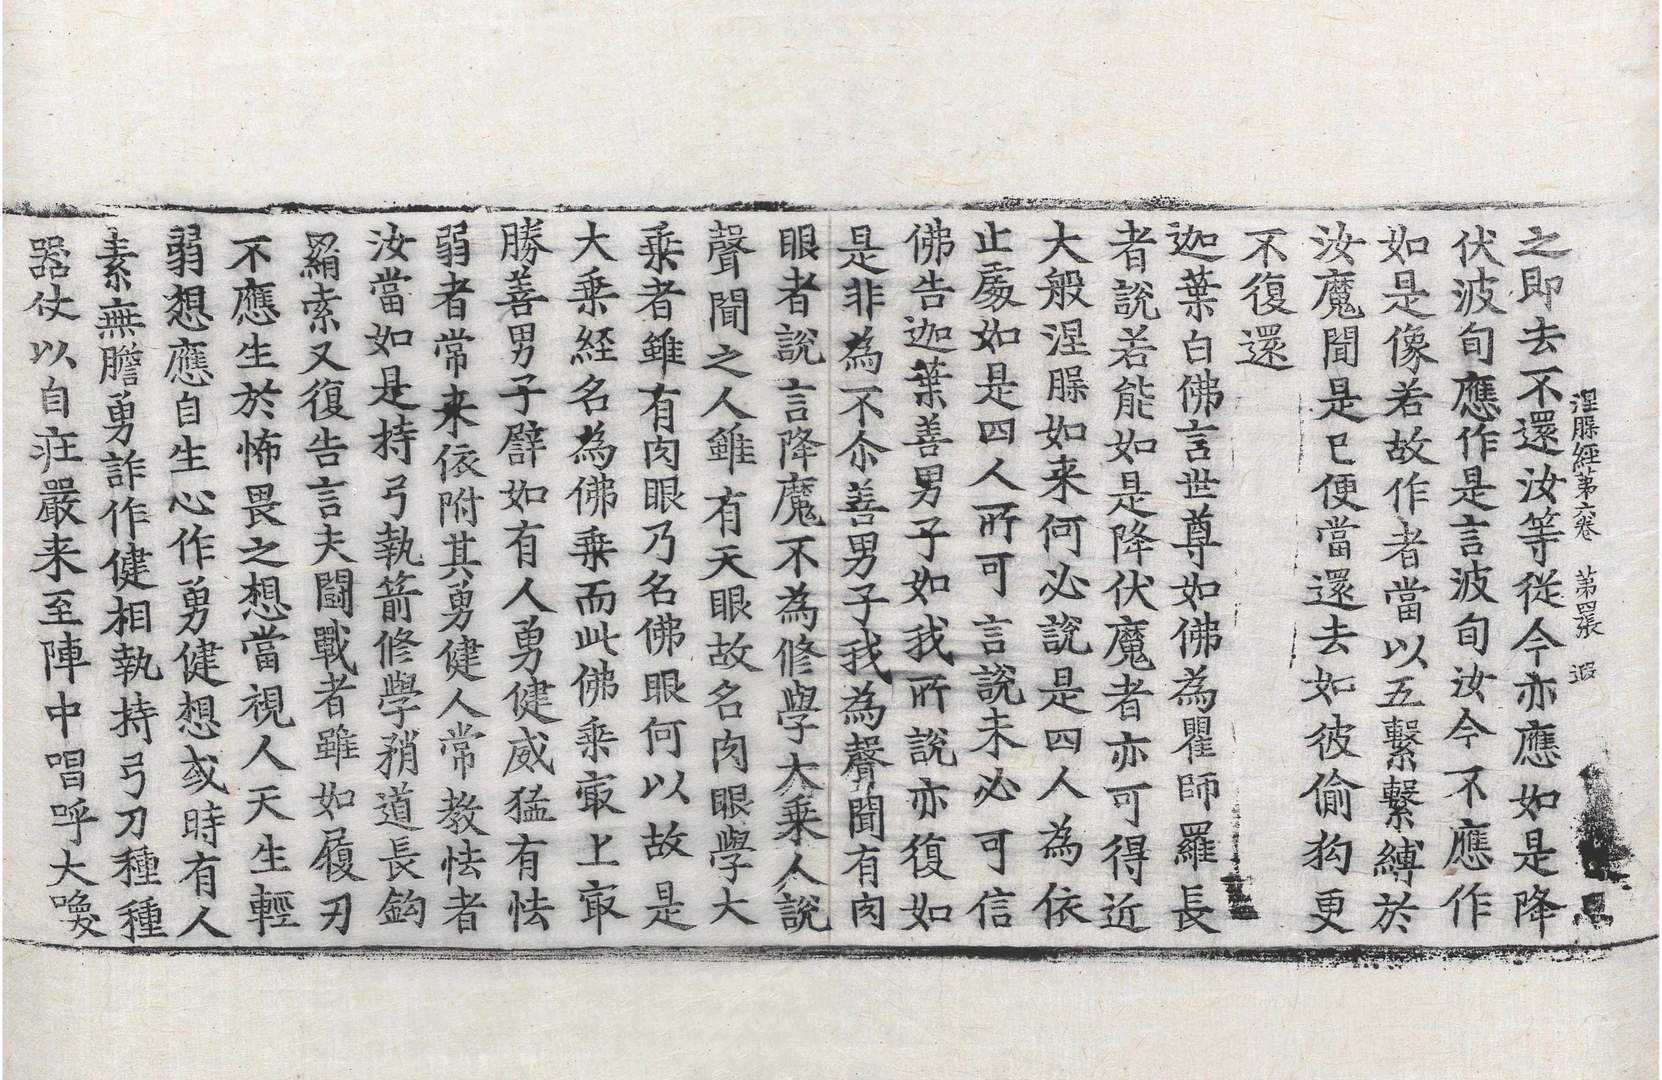 涅槃經第六卷 第四張 遐
之即去不還汝等從今亦應如是降
伏波旬應作是言波旬汝今不應作
如是像若故作者當以五繫繫縛於
汝魔聞是已便當還去如彼偷狗更
不復還
迦葉白佛言世尊如佛為瞿師羅長
者說若能如是降伏魔者亦可得近
大般涅槃如来何必說是四人為依
止處如是四人所可言說未必可信
佛告迦葉善男子如我所說亦復如
是非為不尒善男子我為聲聞有肉
眼者說言降魔不為修學大乗人說
聲聞之人雖有天眼故名肉眼學大
乗者雖有肉眼乃名佛眼何以故是
大乗経名為佛乗而此佛乗㝡上㝡
勝善男子譬如有人勇健威猛有怯
弱者常来依附其勇健人常教怯者
汝當如是持弓執箭修學矟道長鈎
羂索又復告言夫鬪戰者雖如履刃
不應生於怖畏之想當視人天生輕
弱想應自生心作勇健想或時有人
素無膽勇詐作健相執持弓刀種種
器仗以自庄嚴来至陣中唱呼大喚